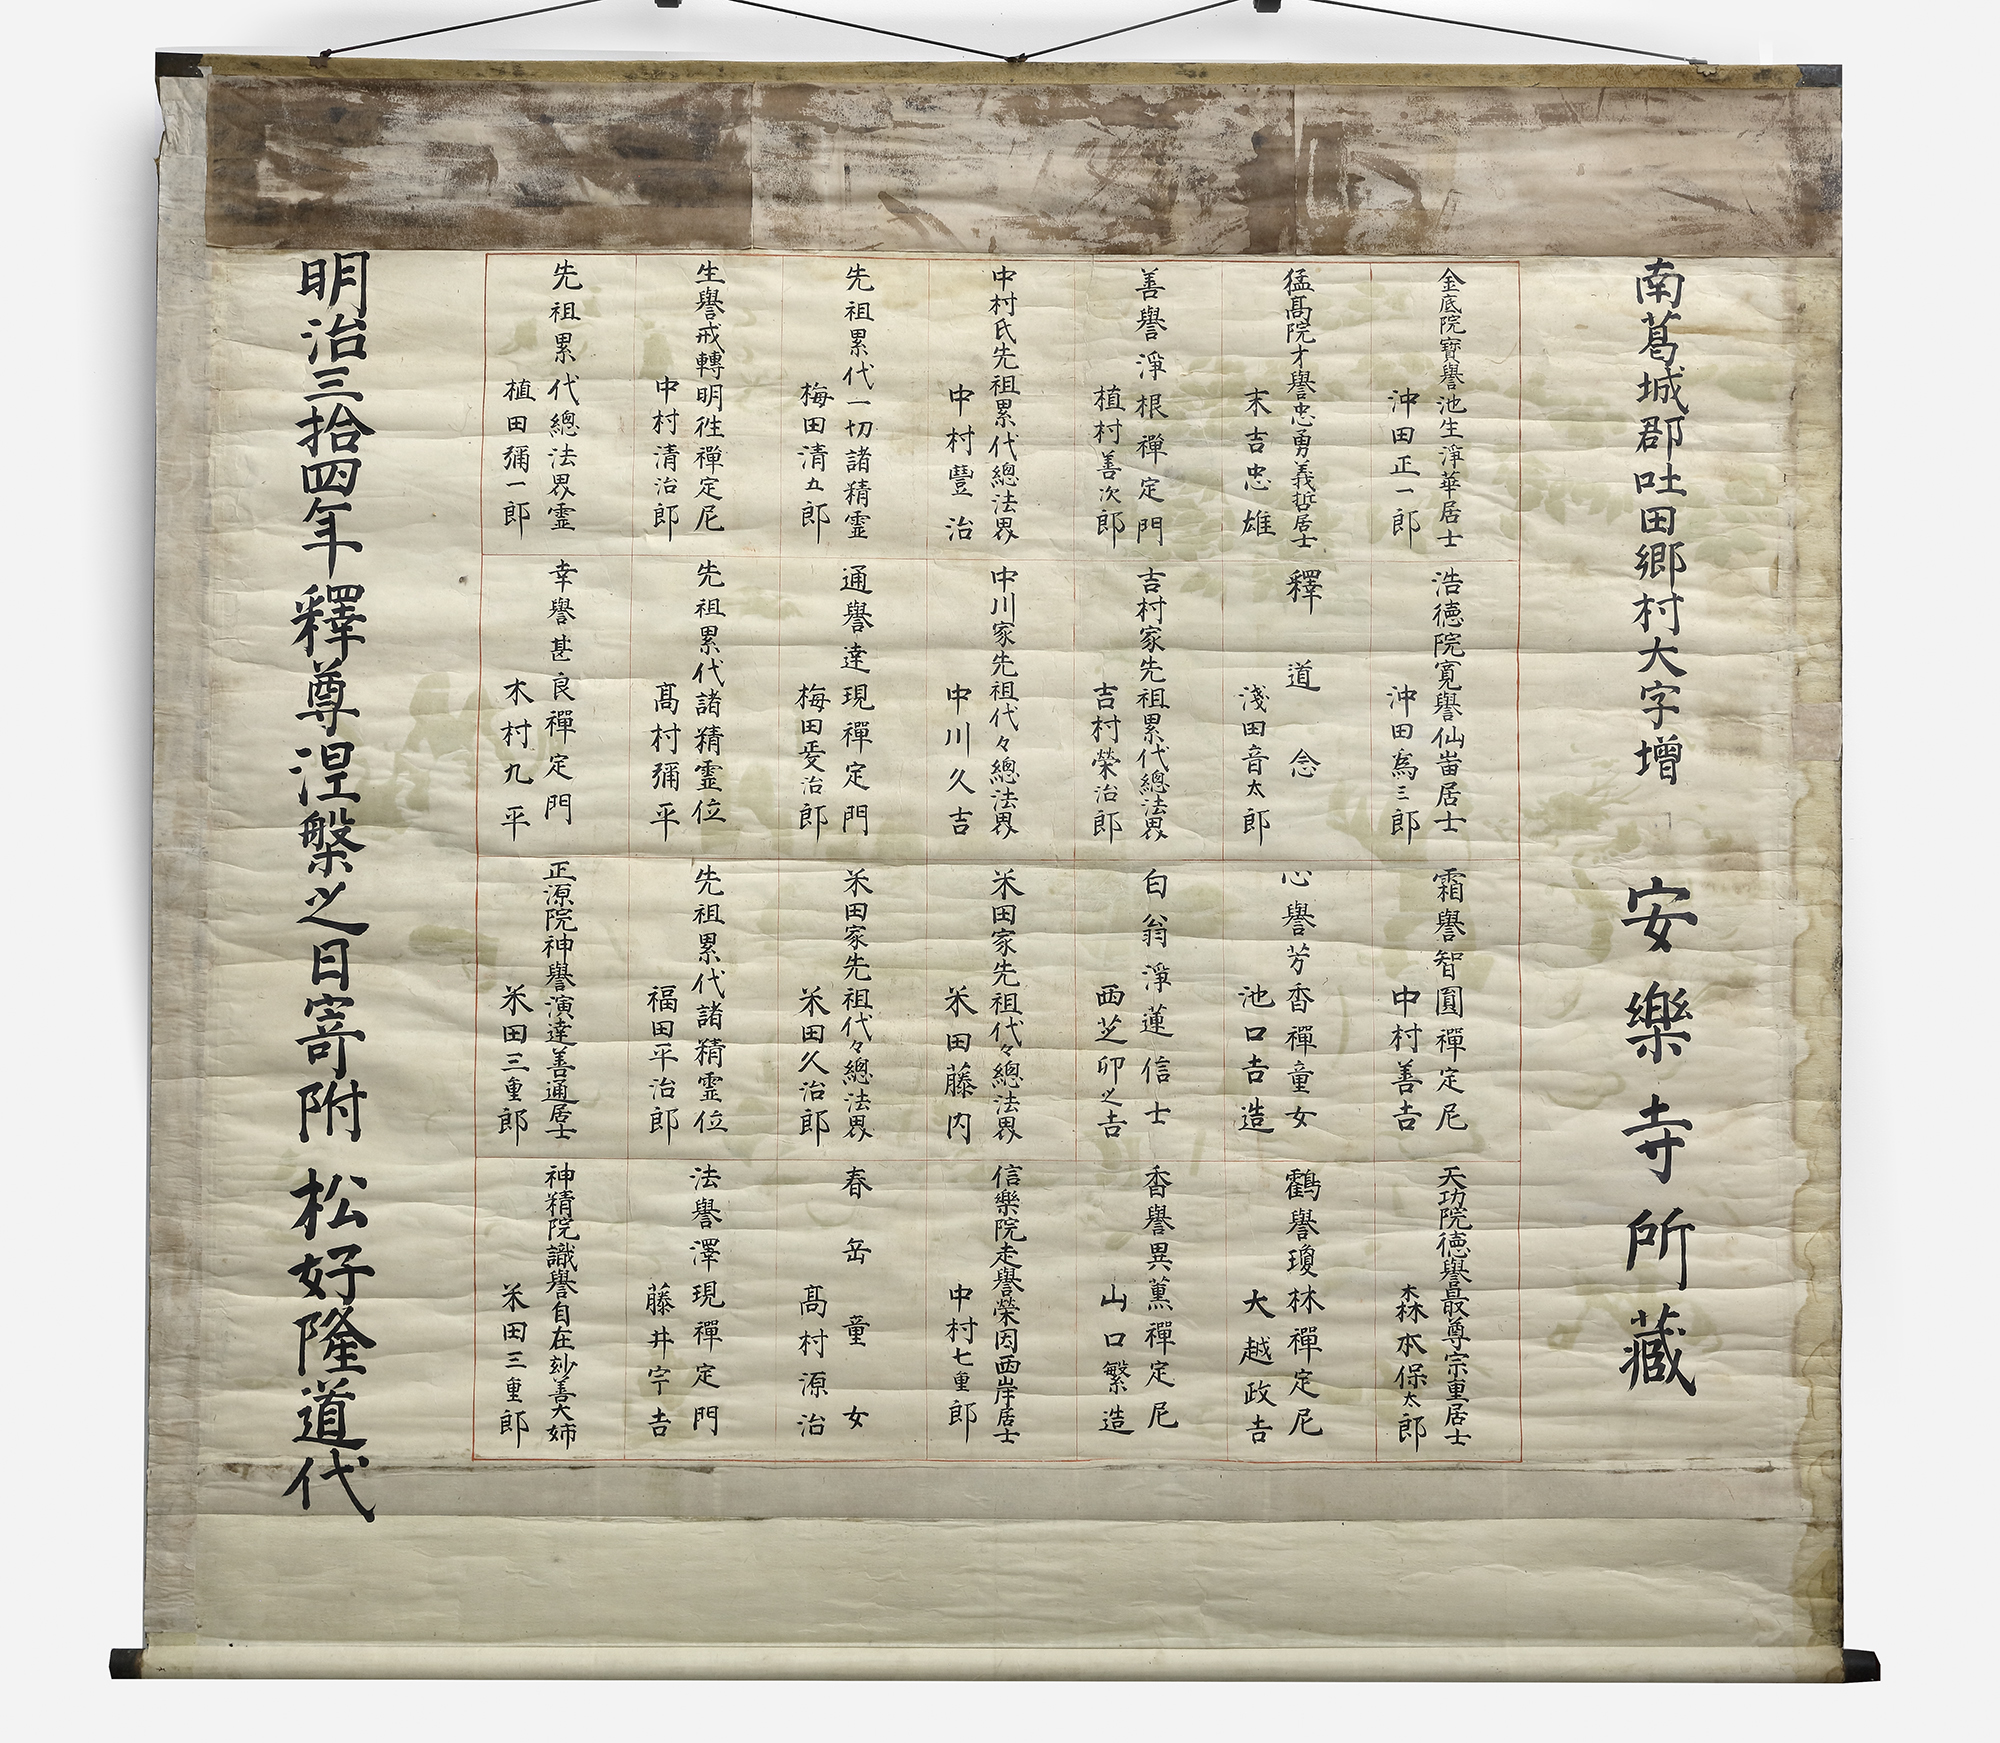 南葛城郡吐田郷村大字増 安樂寺所藏
金底院寳譽池生淨華居士
沖田正一郎
浩徳院寛譽仙苗居士
沖田為三郎
霜譽智圓禪定尼
中村善吉
天功院徳譽最尊宗重居士
森本保太郎
猛髙院才譽忠勇義哲居士
末吉忠雄
釋道念
淺田音太郎
心譽芳香禪童女
池口吉造
鶴譽瓊林禪定尼
大越政吉
善譽淨根禪定門
植村善次郎
吉村家先祖累代總法界
吉村榮治郎
白翁淨蓮信士
西芝卯之吉
香譽異薫禪定尼
山口繁造
中村氏先祖累代總法界
中村豐治
中川家先祖代々總法界
中川久吉
米田家先祖代々總法界
米田藤内
信樂院走譽榮因西岸居士
中村七重郎
先祖累代一切諸精霊
梅田清五郎
通譽達現禪定門
梅田爱治郎
米田家先祖代々總法界
米田久治郎
春岳童女
髙村源治
生譽戒轉明徃禪定尼
中村清治郎
先祖累代諸精霊位
髙村彌平
先祖累代諸精霊位
福田平治郎
法譽澤現禪定門
藤井宇吉
先祖累代總法界霊
植田彌一郎
幸譽甚良禪定門
木村九平
正源院神譽演達善通居士
米田三重郎
神精院識譽自在玅善大姉
米田三重郎
明治三拾四年釋尊涅槃之日寄附 松好隆道代